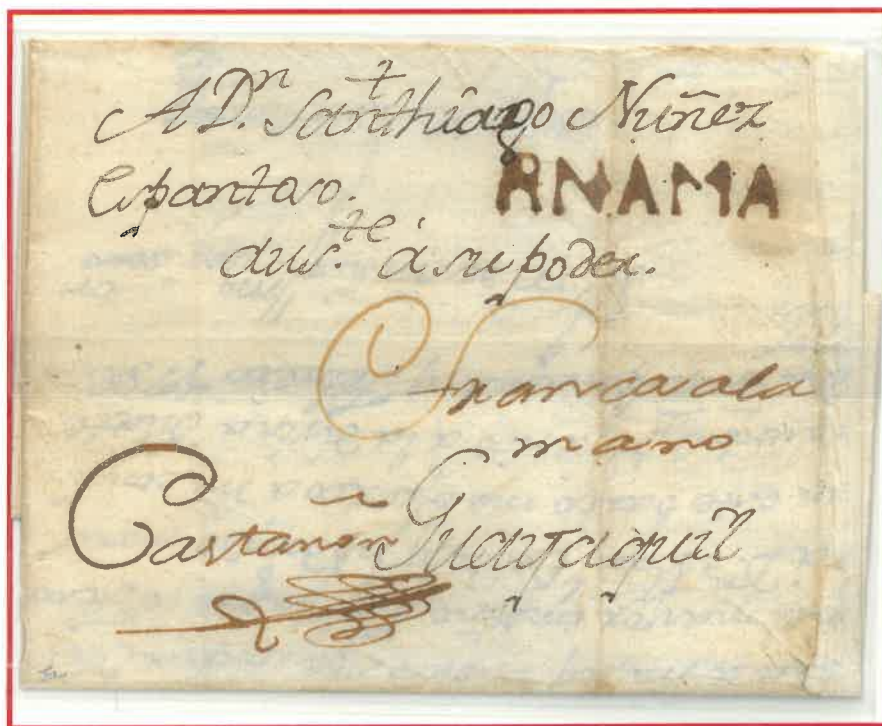 A Dn. Santhiago Nuñez
Espantoso. RNAMA
aus.te á su poder.
Franca ala
mano
Castañon Guayaquil